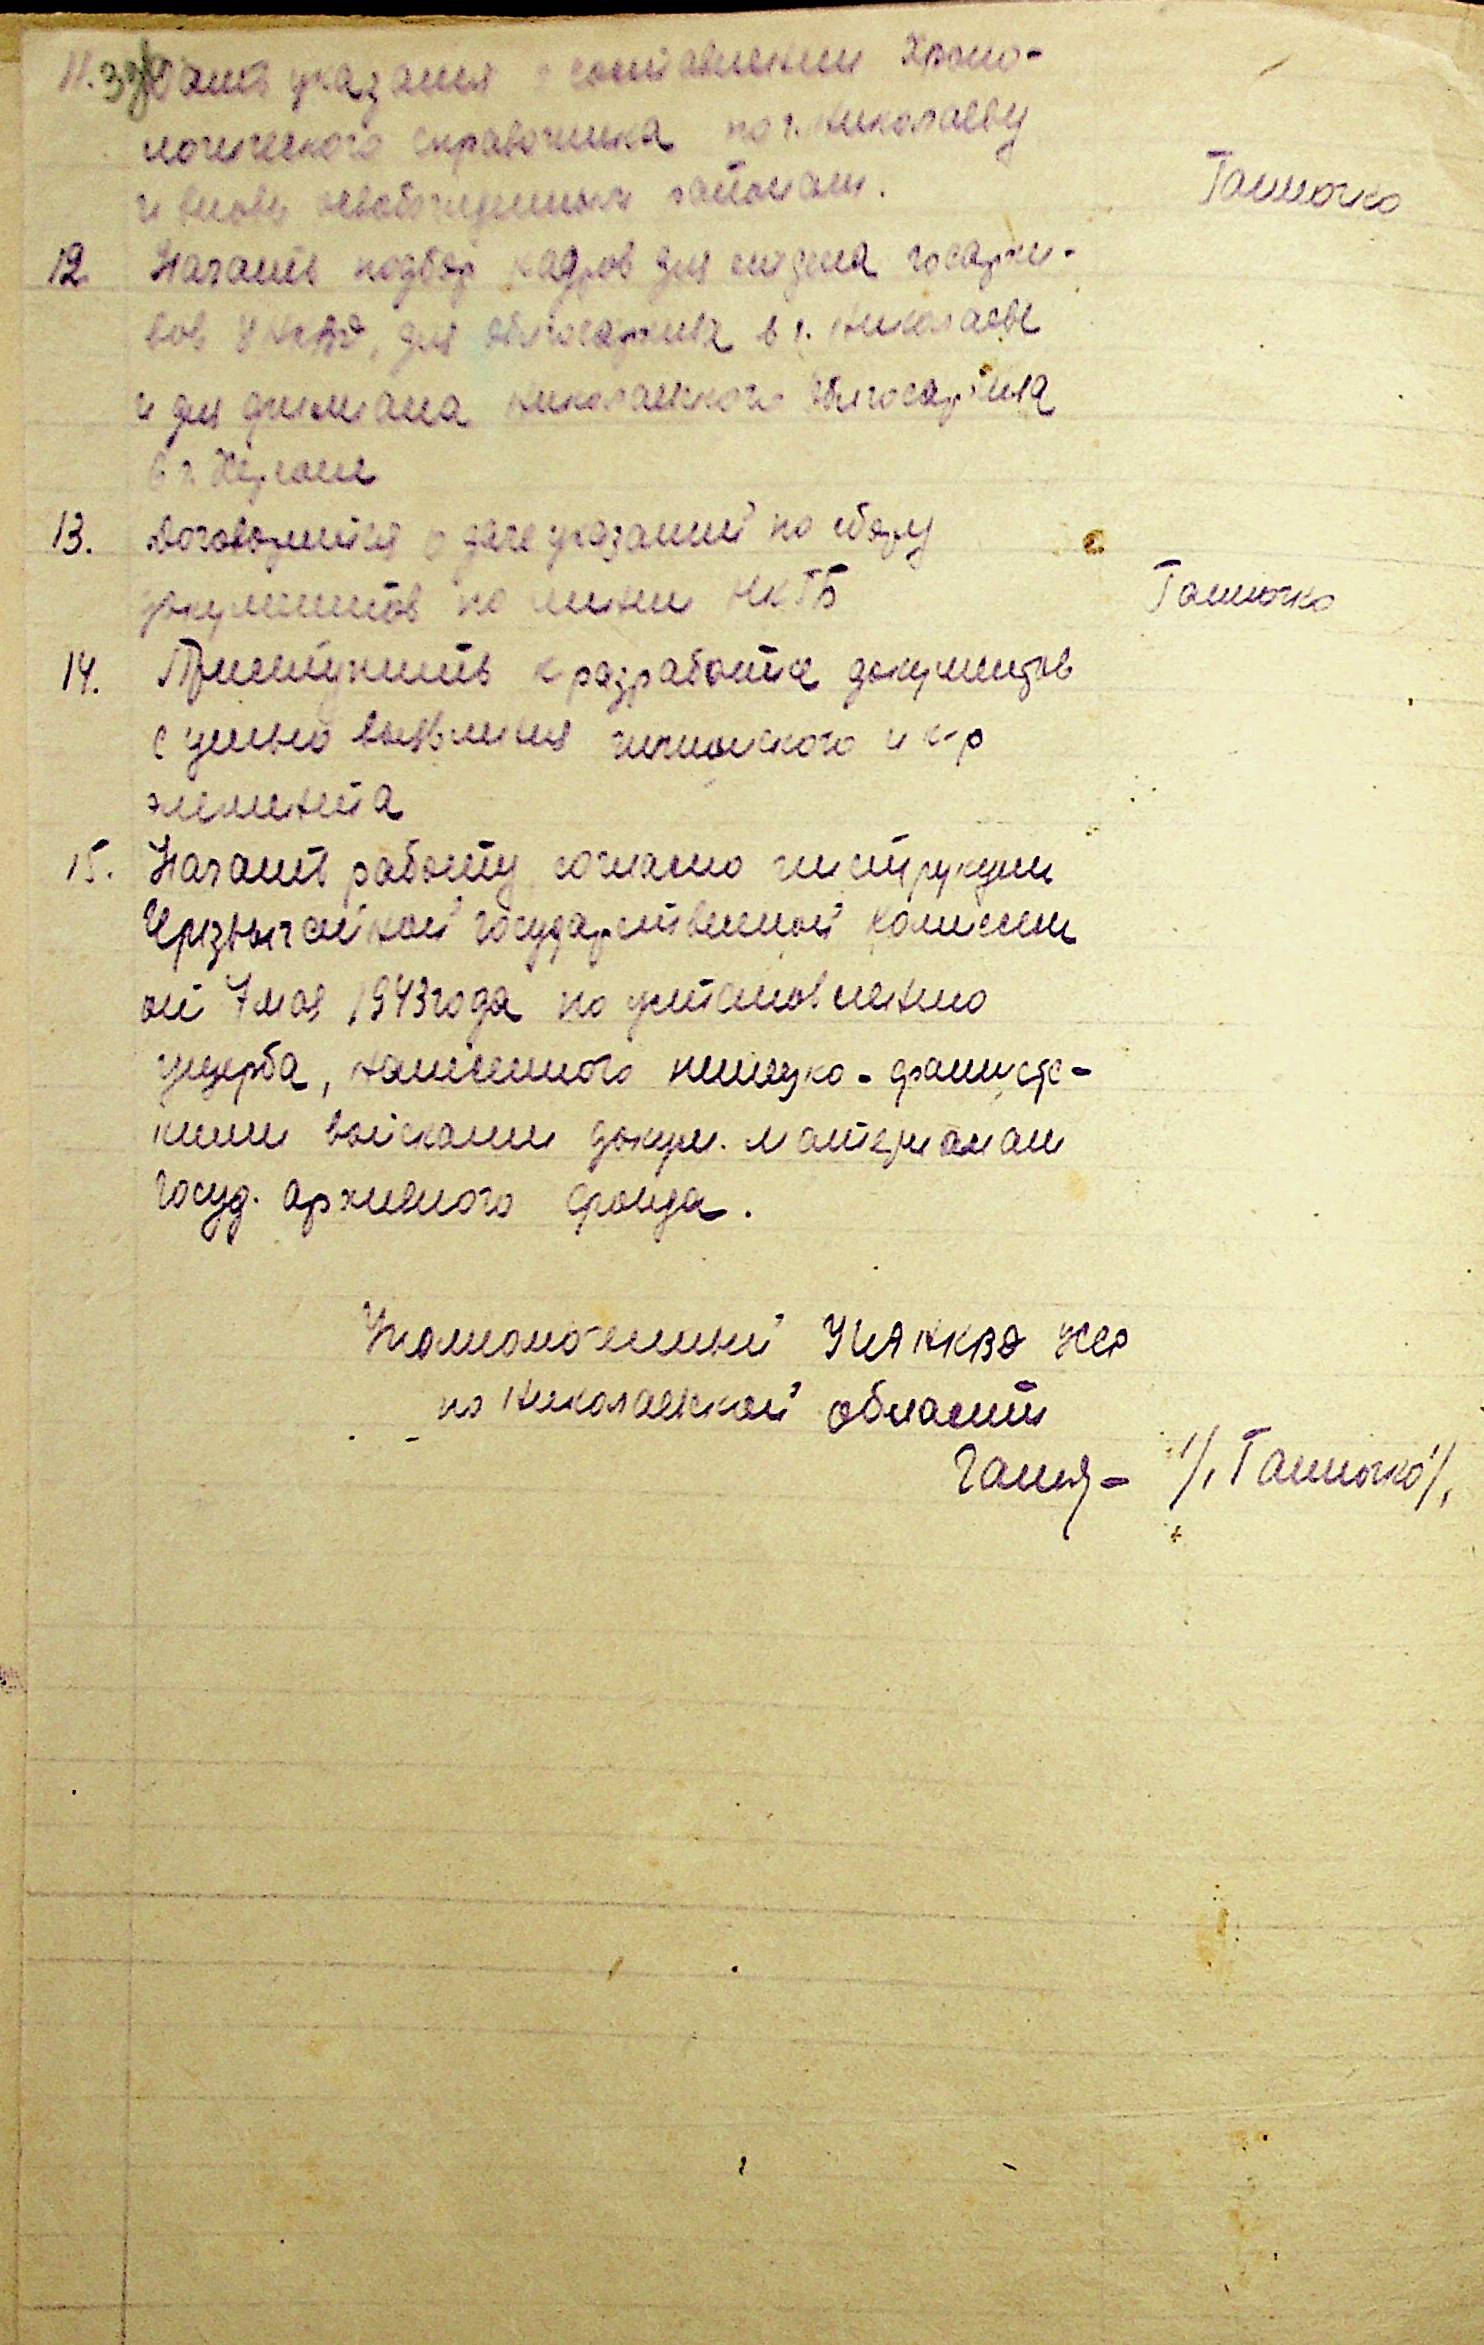 11. Дать указания о составлении Хроно-
логического справочника по г. Николаеву
и вновь освобожденным районам. Ганночка
12. Начать подбор кадров для отдела госархи-
вов УНКВД, для облгосархива в г. Николаеве
и для филиала Николаевского облгосархива
в г. Херсоне
13. Договориться о даче указаний по сбору
документов по линии НКГБ Ганночка
14. Приступить к разработке документов
с целью выявления шпионского и к-р
элемента
15. Начать работу согласно инструкции
Чрезвычайной государственной комиссии
от 7 мая 1943 года по установлению
ущерба, нанесенного немецко-фашистс-
кими войсками докум. материалам
Госуд. архивного фонда.
Уполномоченный УГА НКВД УССР
по Николаевской области
/Ганночка/